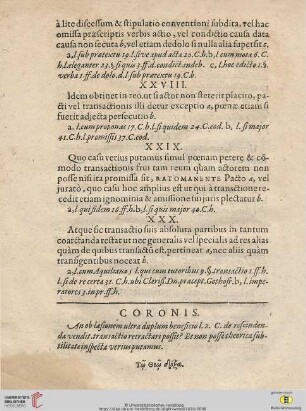 à lite discessum & stipulatio conventioni subdita, vel hac
omissa præscriptis verbis actio, vel condictio causa data
causa non secuta b, vel etiam de dolo si nulla alia supersit c,
a. l. sub prætextu 19. l. sive apud acta 20. C. h. b, l. cum mota 6. C.
h. l. eleganter 23. §. si quis 3. ff. d. condict. indeb. c, l. hoc edicto 1. §.
verba 1. ff. de dolo. d. l. sub prætextu 19. C. h.
XXVIII.
Idem obtinet in reo, ut si actor non steterit placito, pacti
vel transactionis illi detur exceptio a, pœnæ etiam si
fuerit adjecta persecutio b.
a. l. cum proponas 17. C. h. l. si quidem 24. C. eod. b, l. si major
41. C. h. l. promissis 37. C. eod.
XXIX.
Quo casu verius putamus simul pœnam petere & cōmodo
transactionis frui tam reum quàm actorem non
posse nisi ita promissa sit, RATO MANENTE Pacto a, vel
jurato, quo casu hoc amplius est ut qui à transactione recedit
etiam ignominia & amissione sui juris plectatur b.
a. l. qui fidem 16. ff. h. b, l. si quis major 40. C. h.
XXX.
Atque sic transactio suis absoluta partibus in tantum
coarctanda restat ut nec generalis vel specialis ad res alias
quàm de quibus transactū est, pertineat a, nec aliis quàm
transigentibus noceat b.
a. l. cum Aquiliana 5 l. qui cum tutoribus 9. §. transactio 1. ff. h.
l. si de re certa 31. C. h. ubi Clariss. Dn. præcept. Gothofr. b, l. imperatores
3. in pr. ff. h.
CORONIS.
An ob læsionem ultra duplum beneficio l. 2. C. de rescindenda
vendit. transactio retractari possit? Et non posse theorica subtilitate
inspecta verius putamus.
Τῷ Θεῷ δόξα.
UNIVERSITÄTS-
BIBLIOTHEK
HEIDELBERG
© Universitätsbibliothek Heidelberg